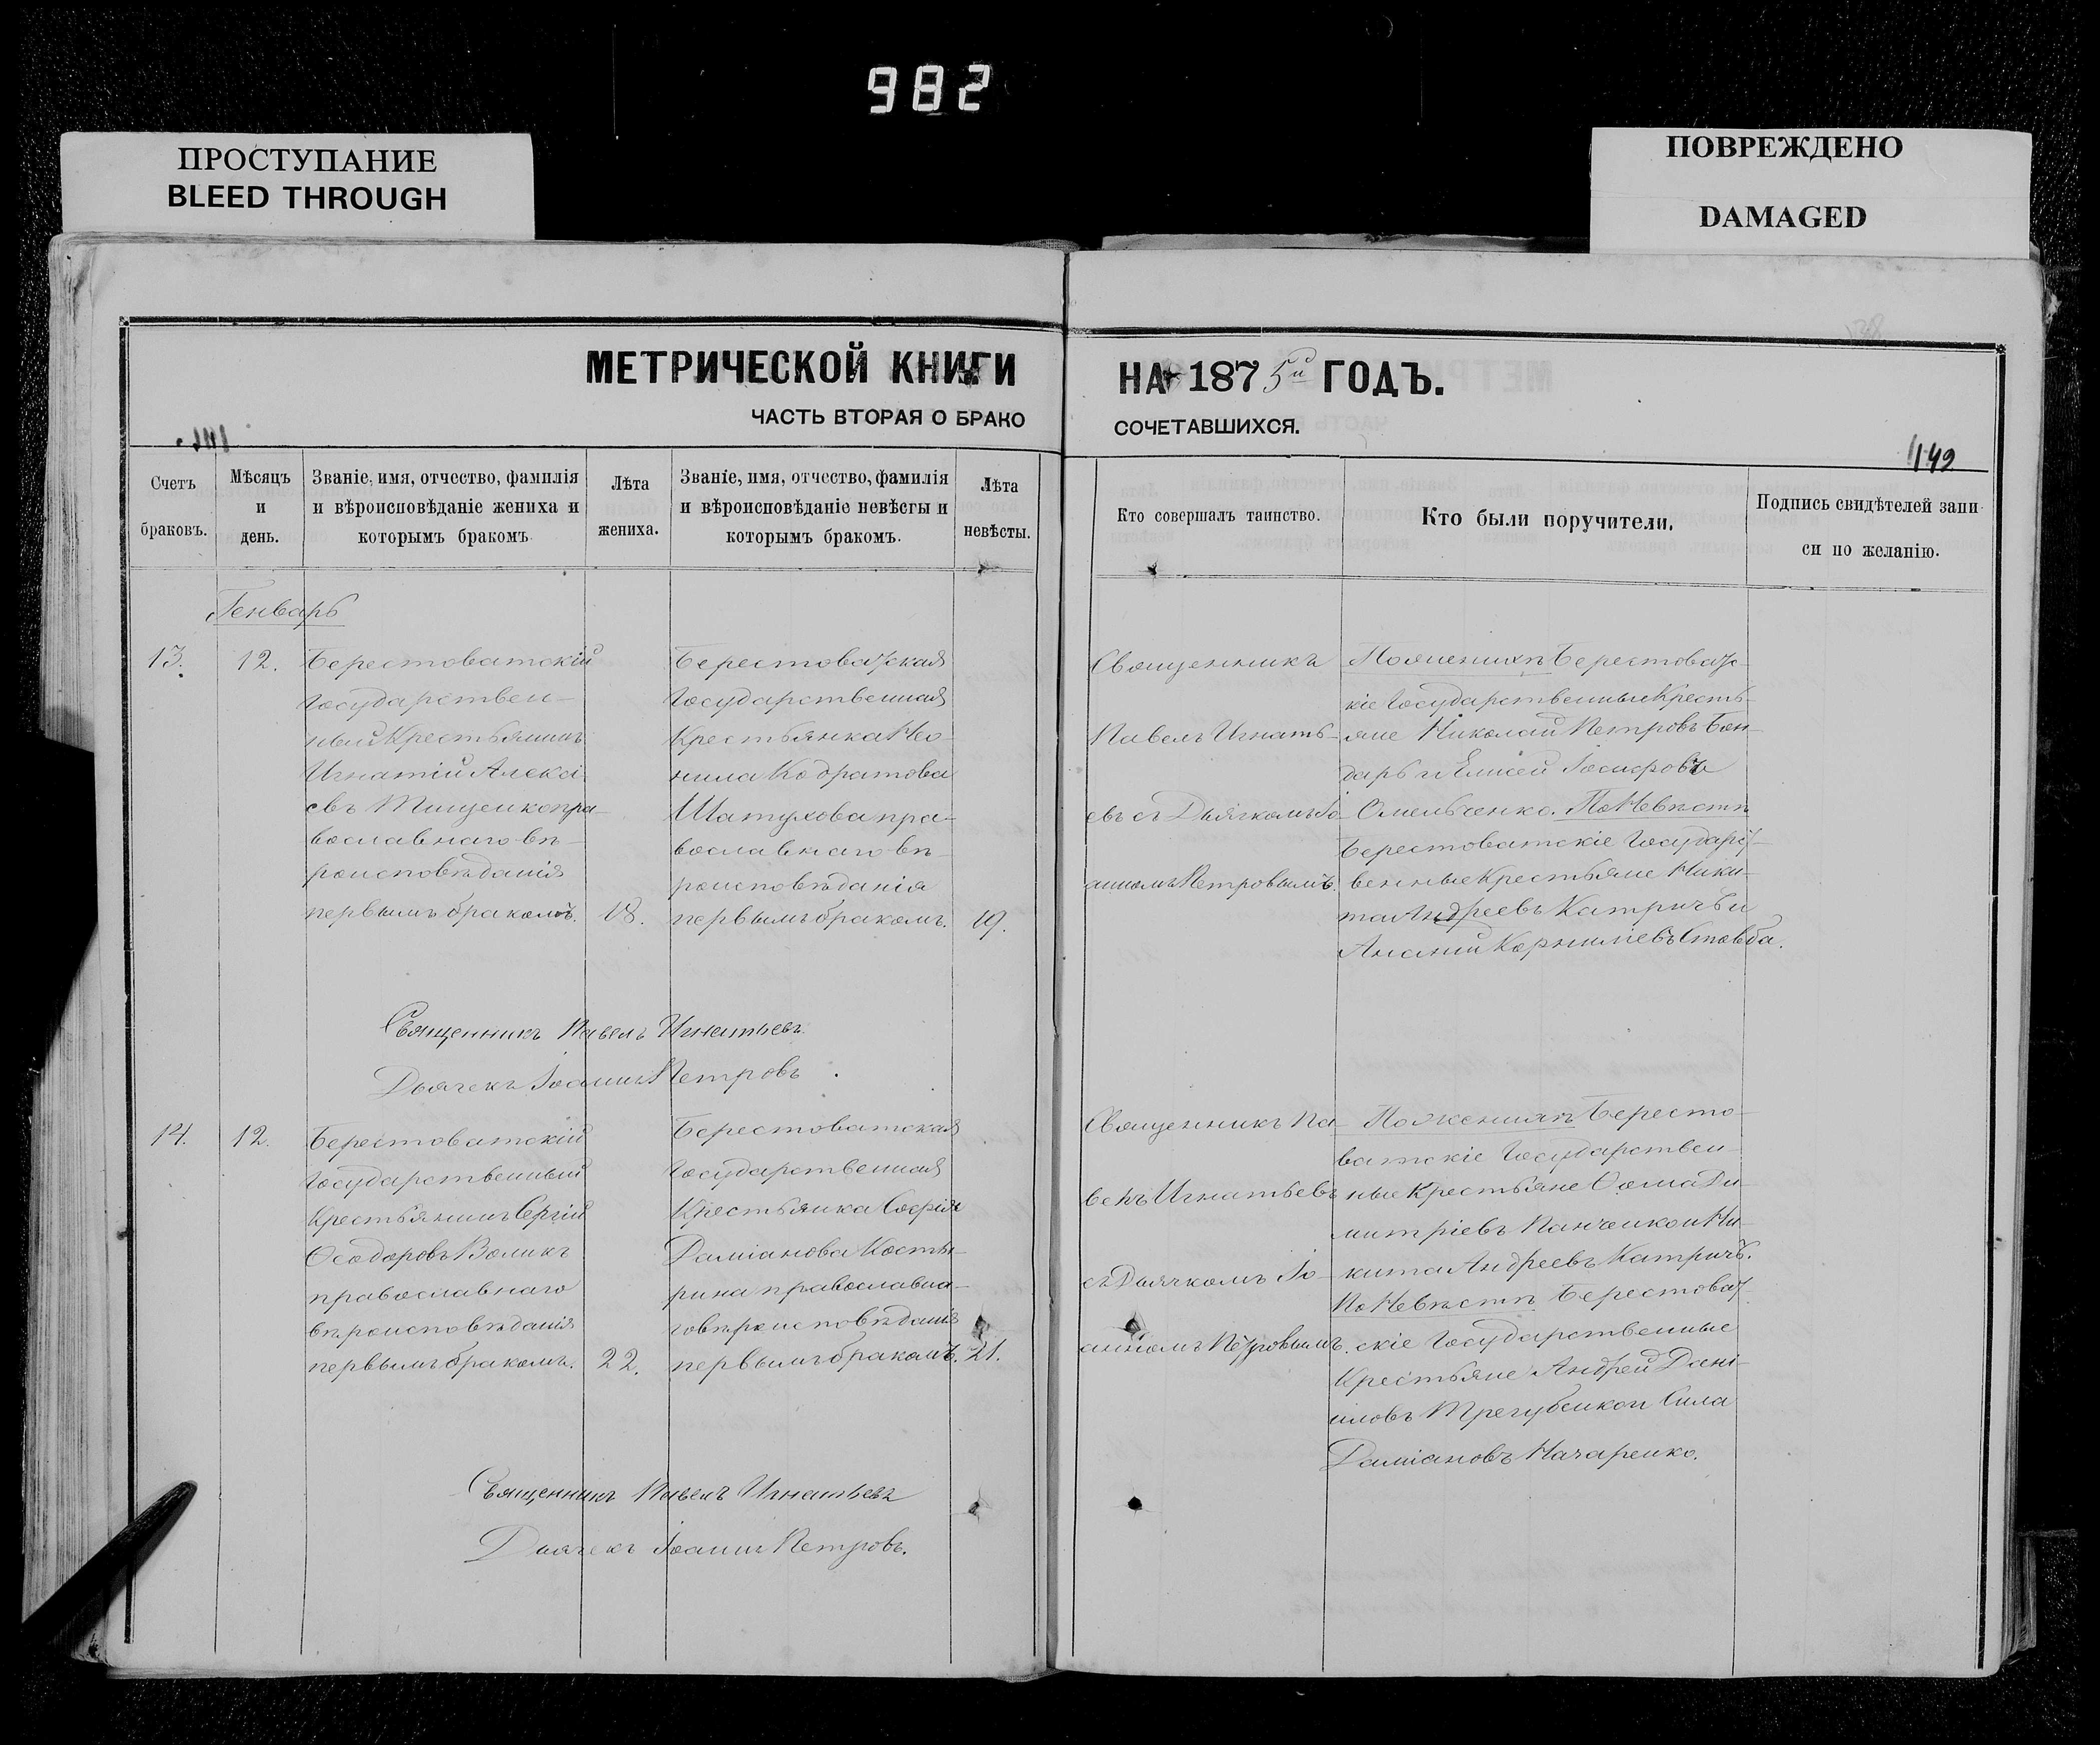 982
ПРОСТУПАНИЕ
BLEED THROUGH
ПОВРЕЖДЕНО
DAMAGED
МЕТРИЧЕСКОЙ КНИГИ
НА 1875й ГОДЪ.
ЧАСТЬ ВТОРАЯ О БРАКО
СОЧЕТАВШИХСЯ.
149
Счетъ
браковъ.
Мѣсяцъ
и
день.
Званіе, имя, отчество, фамилія
и вѣроисповѣданіе жениха и
которымъ бракомъ.
Лѣта
жениха.
Званіе, имя, отчество, фамилія
и вѣроисповѣданіе невѣсты и
которымъ бракомъ.
Лѣта
невѣсты.
Кто совершалъ таинство.
Кто были поручители.
Подпись свидѣтелей запи
си по желанію.
Генварь
13.
12.
Берестоватскій
Государствен-
ный Крестьянинъ
Игнатій Алексі
евъ Тищенко пра-
вославнаго вѣ-
роисповѣданія
первымъ бракомъ.
18.
Берестоватская
Государственная
Крестьянка Нео-
нила Кодратова
Шатухова пра-
вославнаго вѣ-
роисповѣданія
первымъ бракомъ.
19.
Священникъ
Павелъ Игнать-
евъ съ Дьячкомъ Іо-
анномъ Петровымъ.
По женихѣ Берестоват-
кіе Государственные Кресть-
яне Николай Петровъ Бон-
дарь и Елисей Іосифовъ
Омельченко. По Невѣстѣ
Берестоватскіе Государст-
венные Крестьяне Ники-
та Андреевъ Катричъ и
Ананій Корниліевъ Стовба.
Священникъ Павелъ Игнатьевъ
Дьячекъ Іоаннъ Петровъ.
14.
12.
Берестоватскій
Государственный
Крестьянинъ Сергій
Ѳеодоровъ Воликъ
православнаго
вѣроисповѣданія
первымъ бракомъ.
22.
Берестоватская
Государственная
Крестьянка Софія
Даміанова Косты-
рина православна-
го вѣроисповѣданія
первымъ бракомъ.
21.
Священникъ Па-
велъ Игнатьевъ
съ Дьячкомъ Іо-
анномъ Петровымъ.
По женихѣ Бересто-
ватскіе Государствен-
ные Крестьяне Ѳома Ди-
митріевъ Панченко и Ни-
кита Андреевъ Катричъ.
По Невѣстѣ Берестоват-
скіе Государственные
Крестьяне Андрей Дані-
иловъ Трегубенко и Сила
Даміановъ Назаренко.
Священникъ Павелъ Игнатьевъ
Дьячекъ Іоаннъ Петровъ.